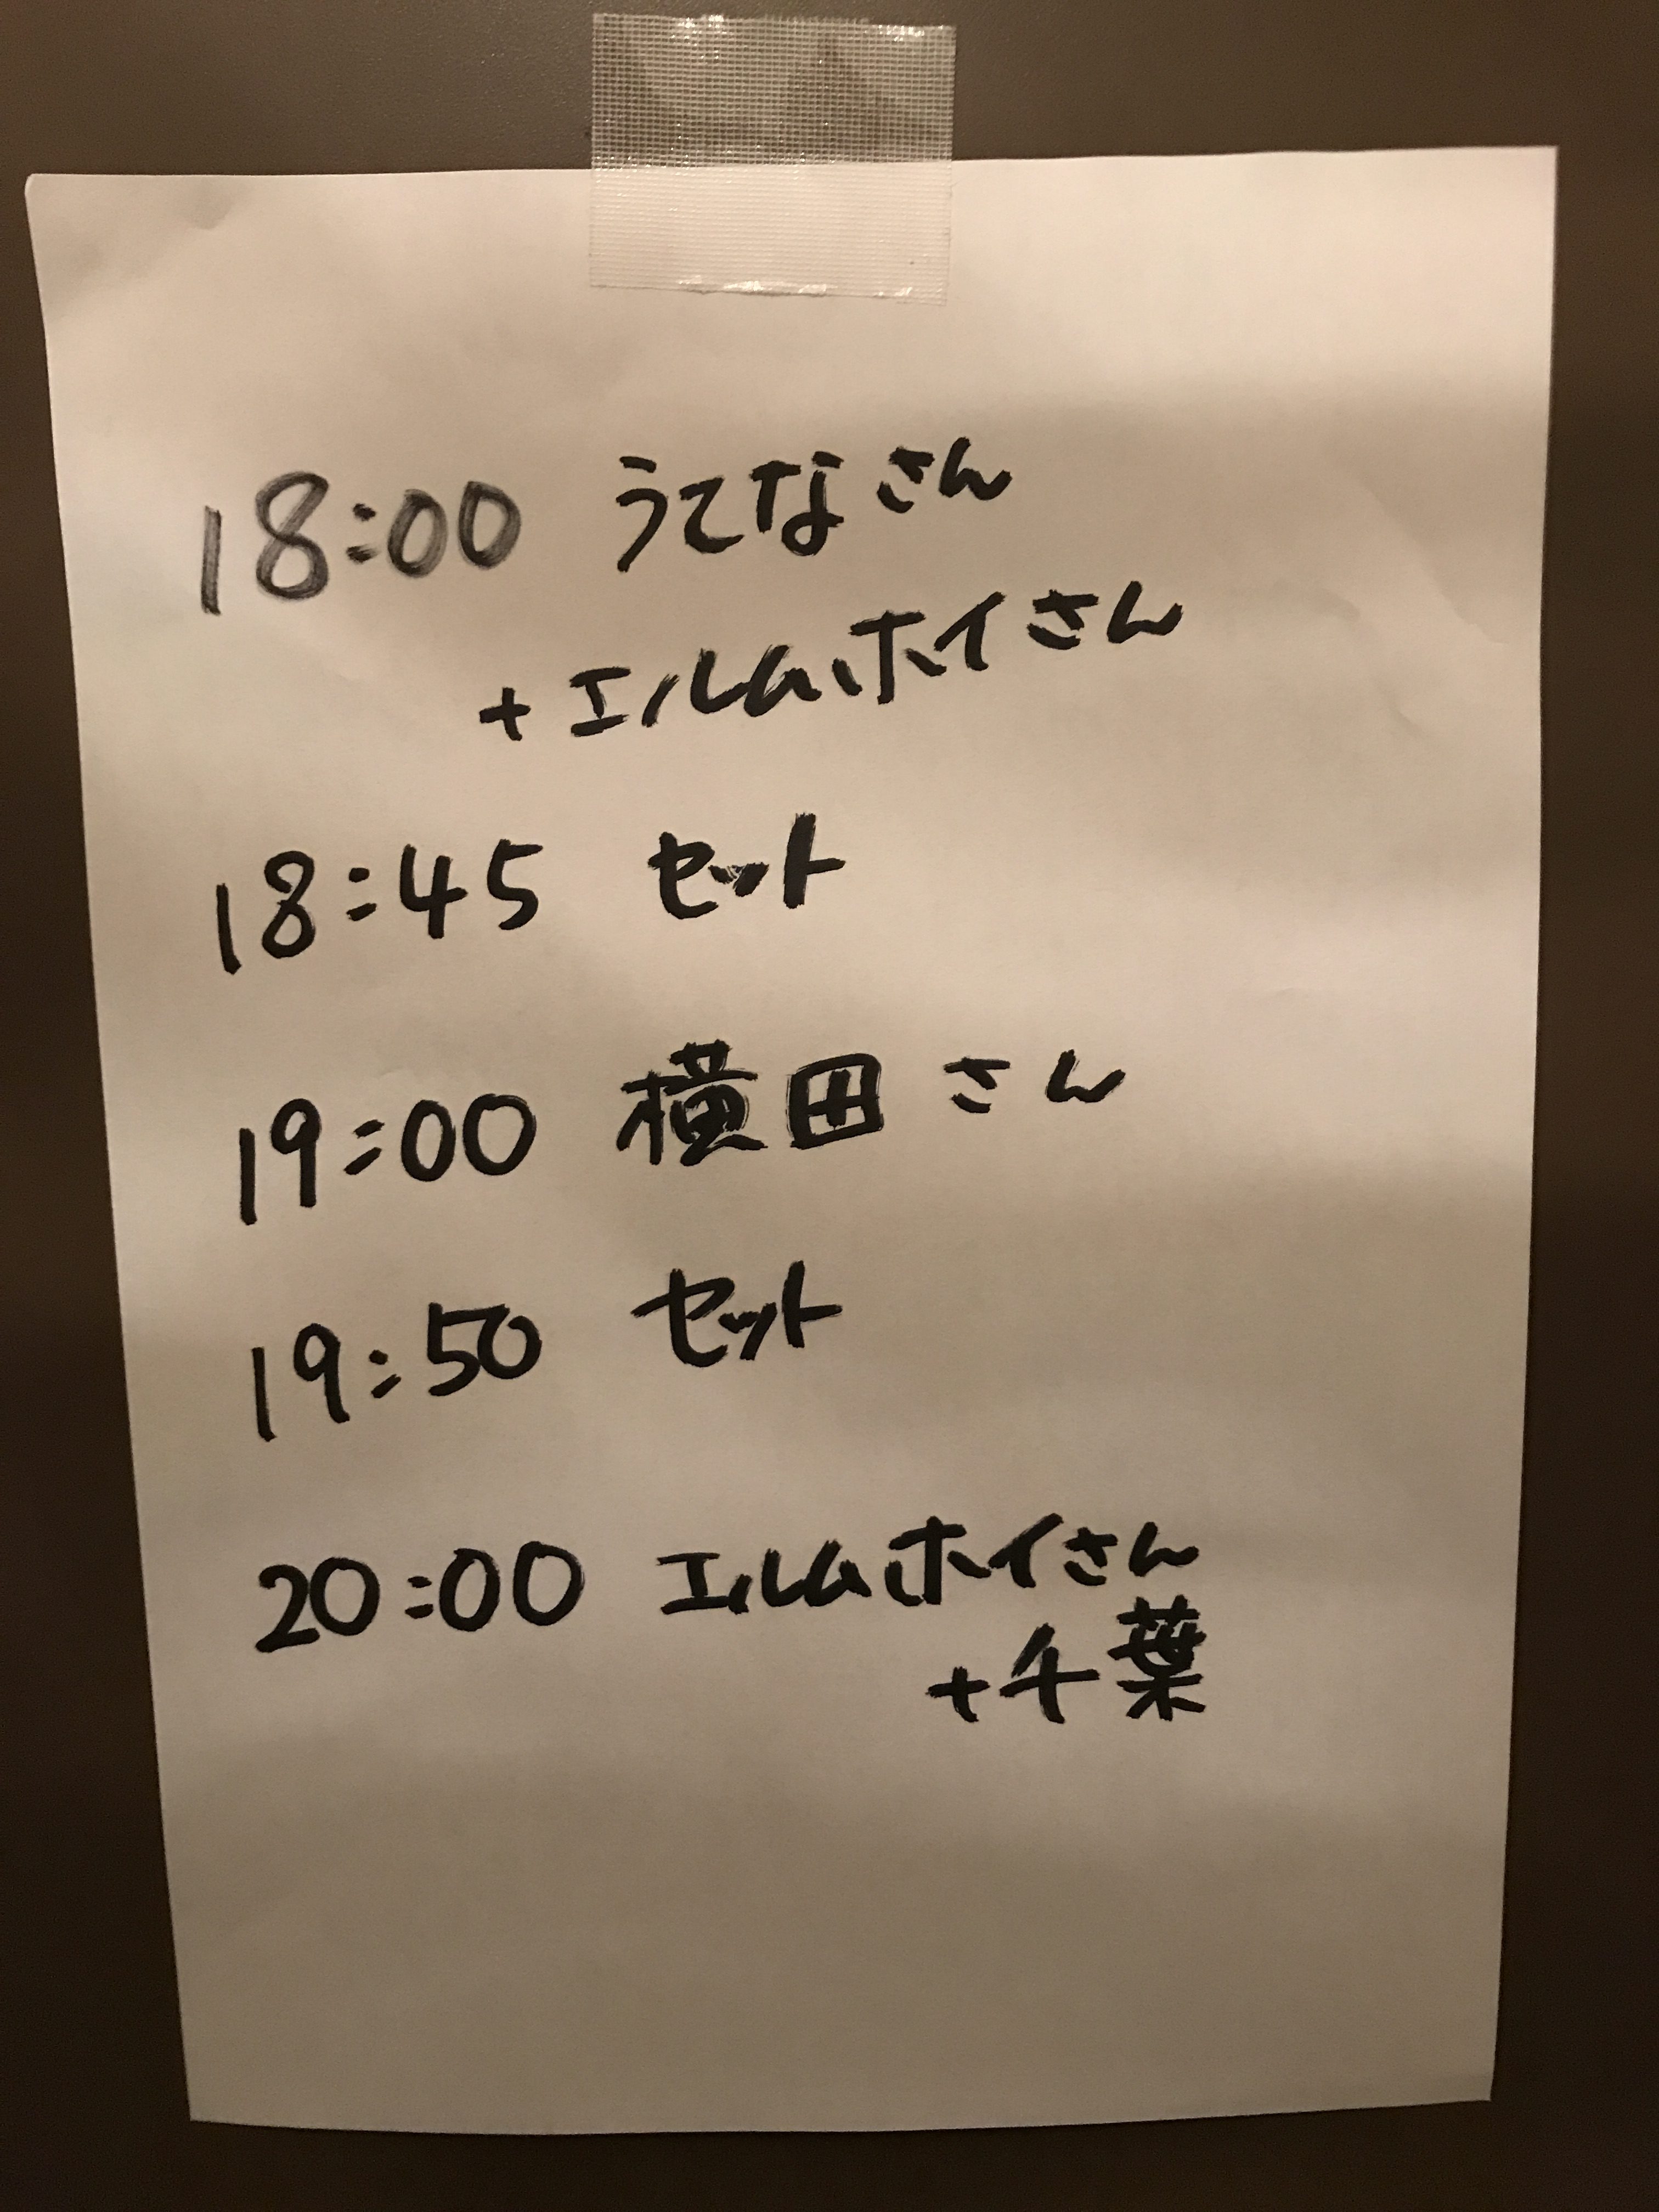 18:00 うてなさん
+エルムホイさん
18:45 セット
19:00 横田さん
19:50 セット
20:00 エルムホイさん
+千葉